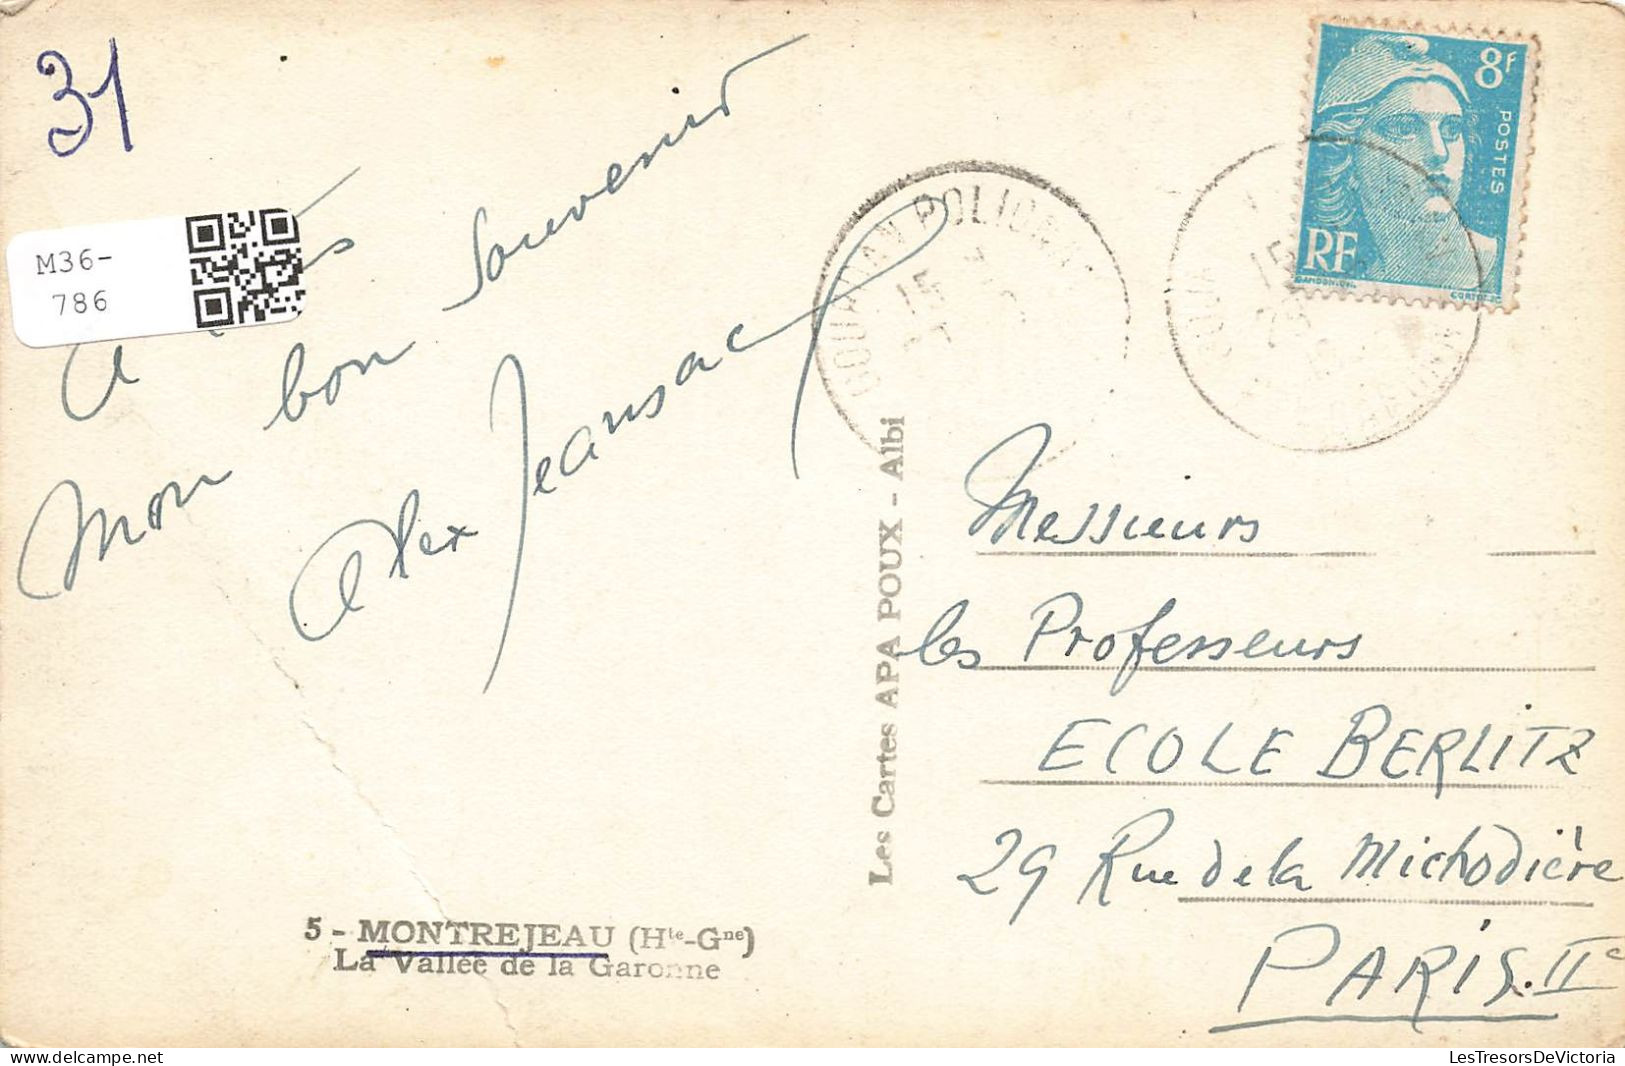 31
M36-
786
Mon bon souvenir
Alex Jeansac
5 - MONTREJEAU (Hte-Gne)
La Vallée de la Garonne
Les Cartes APA POUX - Albi
8f
POSTES
RF
15
15
Messieurs
les Professeurs
ECOLE BERLITZ
29 Rue de la Michodière
PARIS. IIe
LesTresorsDeVictoria